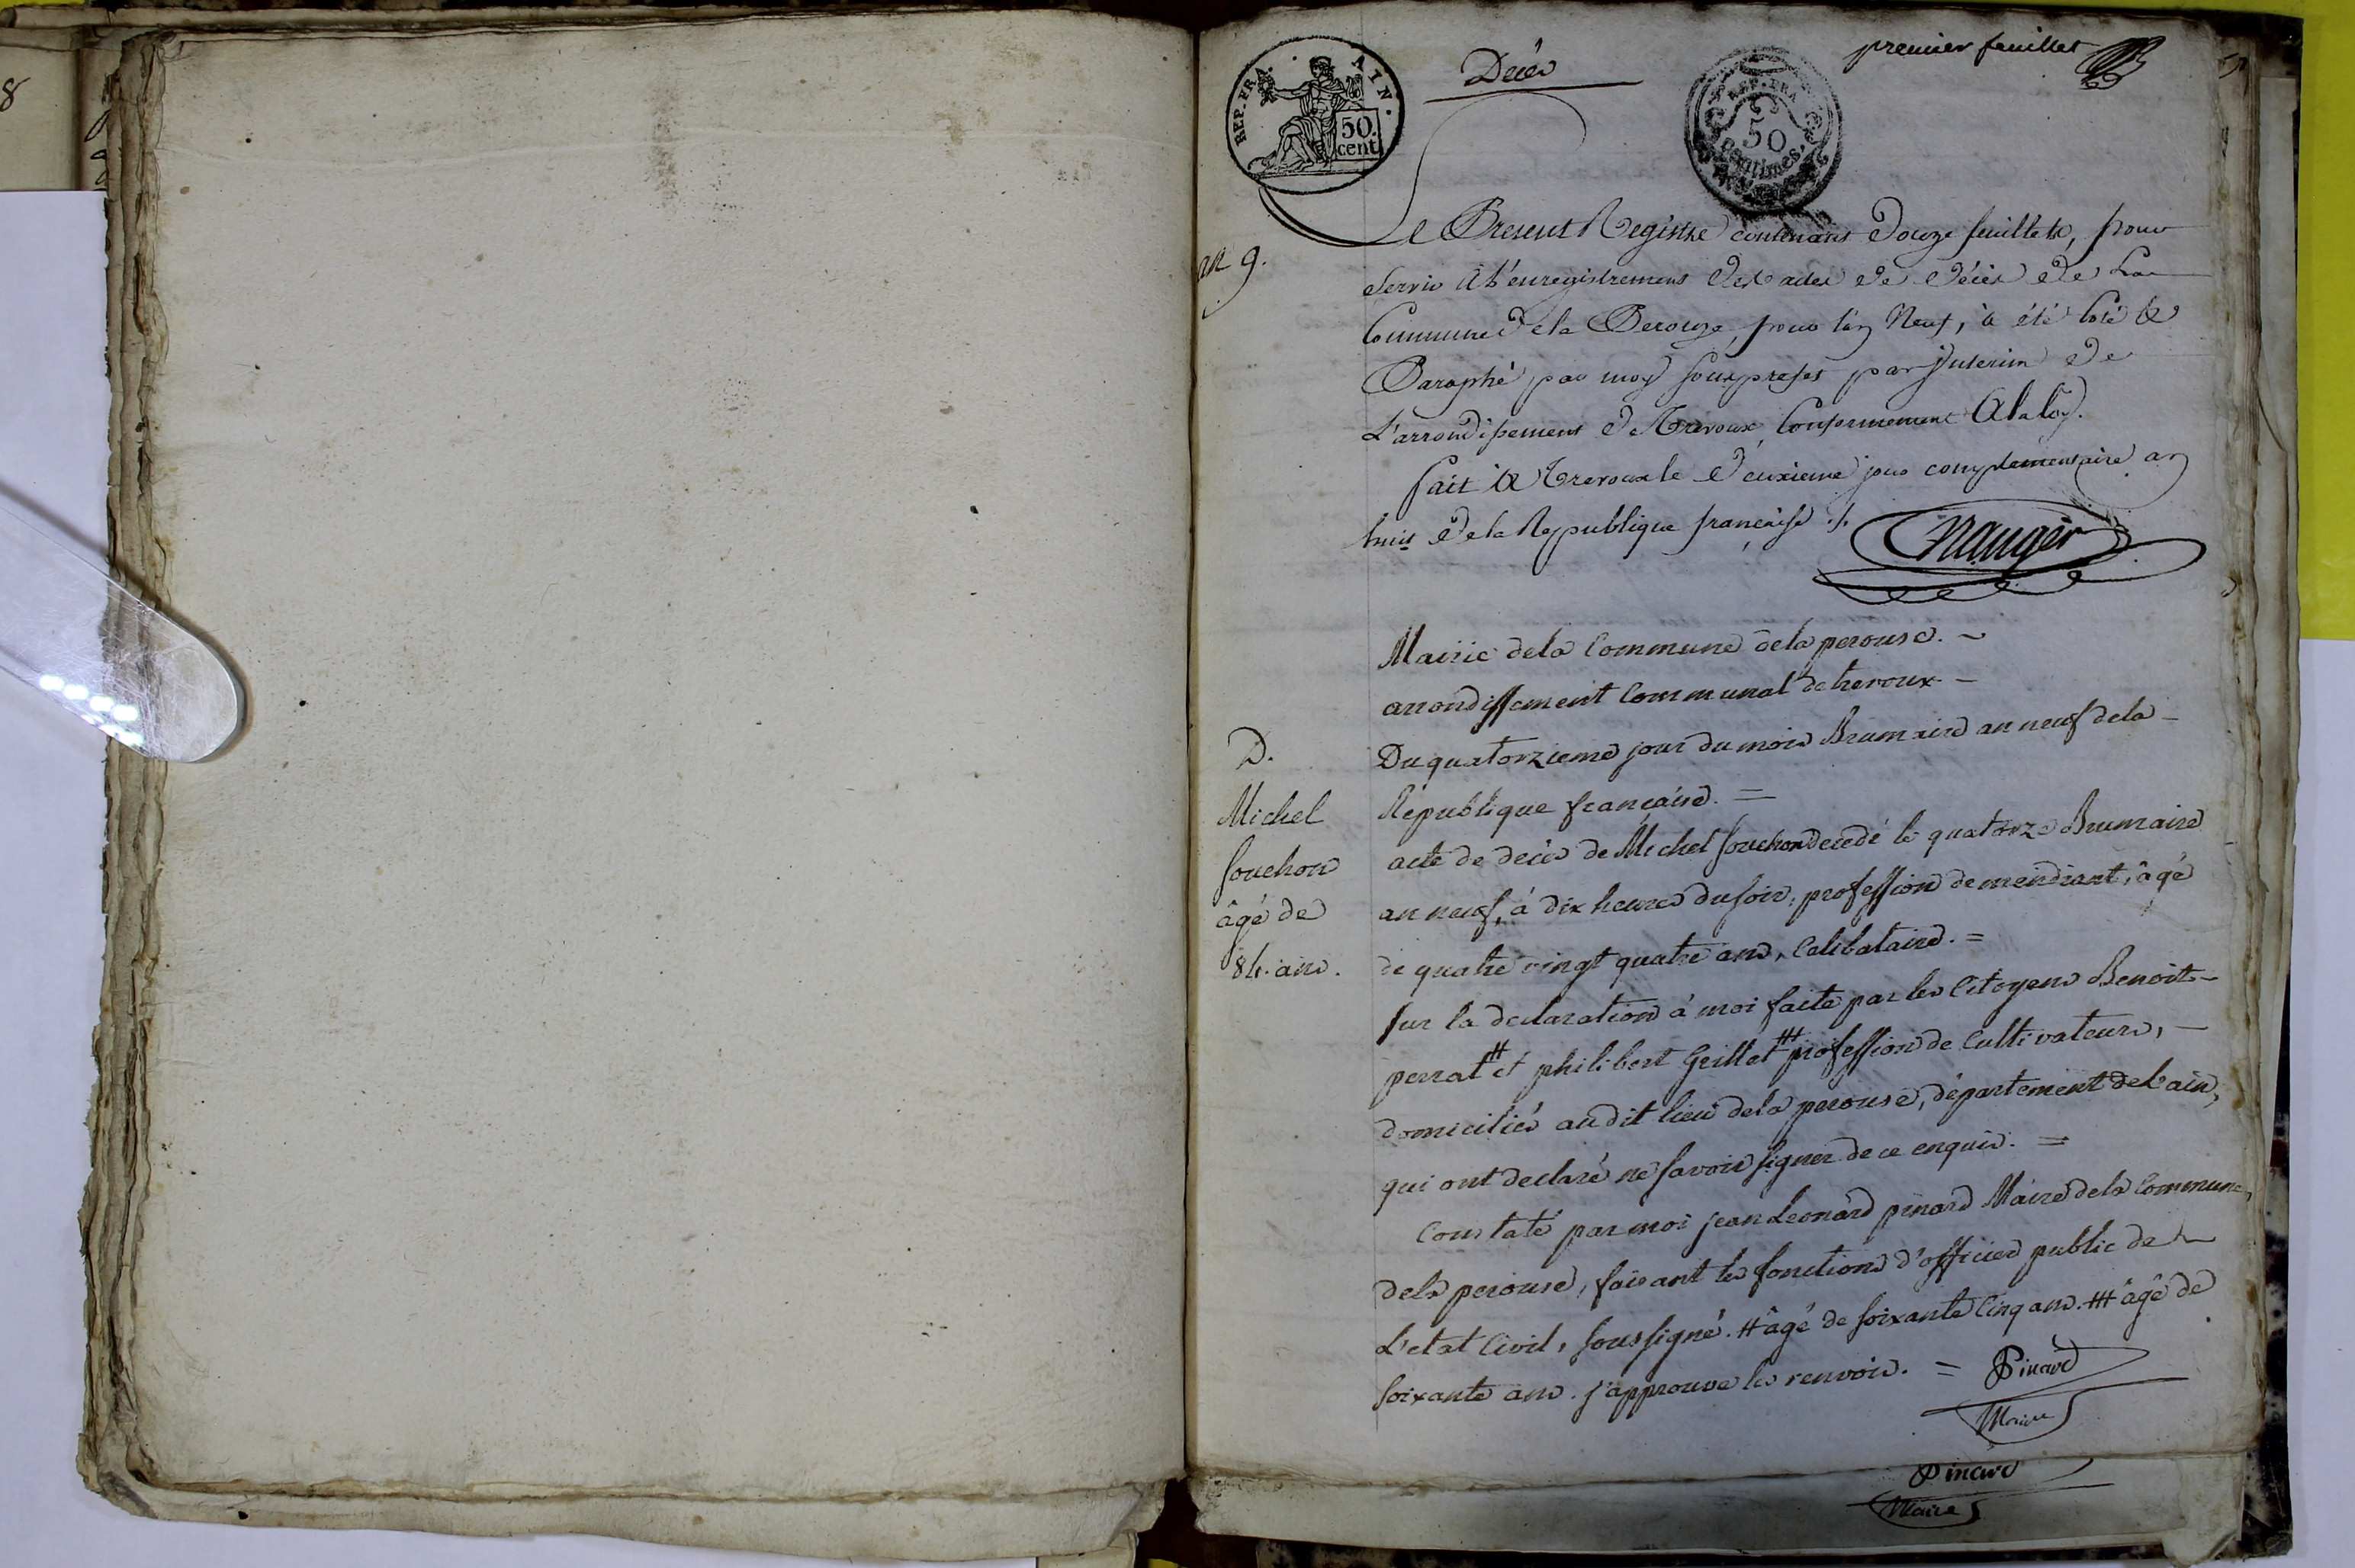 8
premier feuillet
Décès
REP. FRA. ATN.
50
cent.
REP. FRA
50
centimes.
an 9.
Le Present Registre contenant Douze feuillets, pour
Servir à L'enregistrement des actes de décès de La
Commune de la Perouze, pour l'an Neuf, à été Coté &
Paraphé par moy Souspréfet par Interim de
L'arrondissement de Trevoux, Conformement A la loy.
fait à Trevoux le deuxieme jour complementaire an
huit de la Republique française ./.
Nauger
Mairie dela Commune dela perouse. -
arrondissement Communal de trevoux -
Du quatorzieme jour du mois Brumaire an neuf dela -
Republique française. =
D.
Michel
Souchon
âgé de
84. ans.
acte de decès de Michel Souchon decedé le quatorze Brumaire
an neuf, à dix heures du soir, profession de mendiant, âgé
de quatre vingt quatre ans, Celibataire. =
Sur la declaration à moi faite par les Citoyens Benoit -
perrat # et philibert Grillet ## profession de Cultivateurs, -
domiciliés audit lieu dela perouse, département de L'ain,
qui ont declaré ne savoir signer de ce enquis. =
Constaté par moi jean Leonard pinard Maire dela Commune
dela perouse, faisant les fonctions d'officier public de
L'etat Civil, soussigné. # âgé de soixante Cinq ans. ## âgé de
soixante ans. j'approuve les renvois. = Pinard
Maire
Pinard
Maire